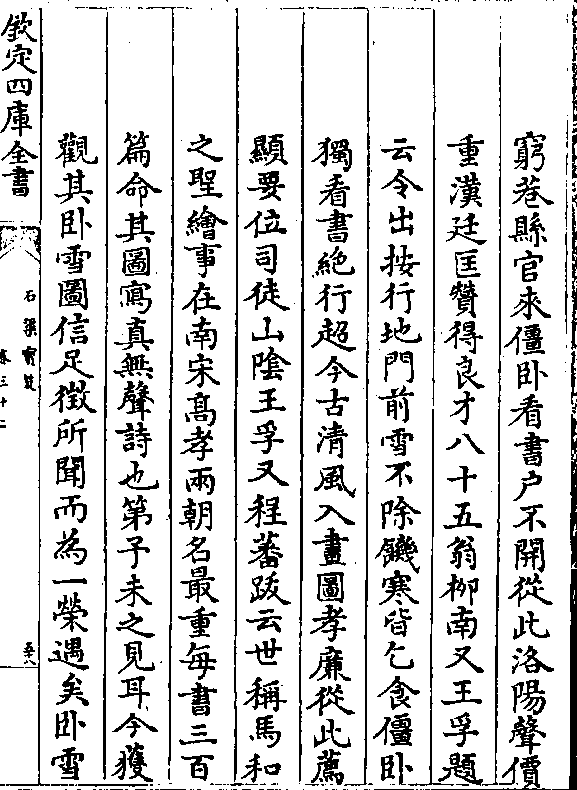 窮巷縣官來僵卧看書户不開從此洛陽聲價
重漢廷匡贊得良才八十五翁柳南又王孚題
云令出按行地門前雪不除饑寒皆乞食僵卧
獨看書絶行超今古清風入畫圖孝廉從此薦
顯要位司徒山陰王孚又程蕃跋云世稱馬和
之聖繪事在南宋髙孝兩朝名最重每書三百
篇命其圖寫真無聲詩也第予未之見耳今獲
觀其卧雪圖信足徴所聞而為一榮遇矣卧雪
欽定四庫全書
石渠寳笈
卷三十二